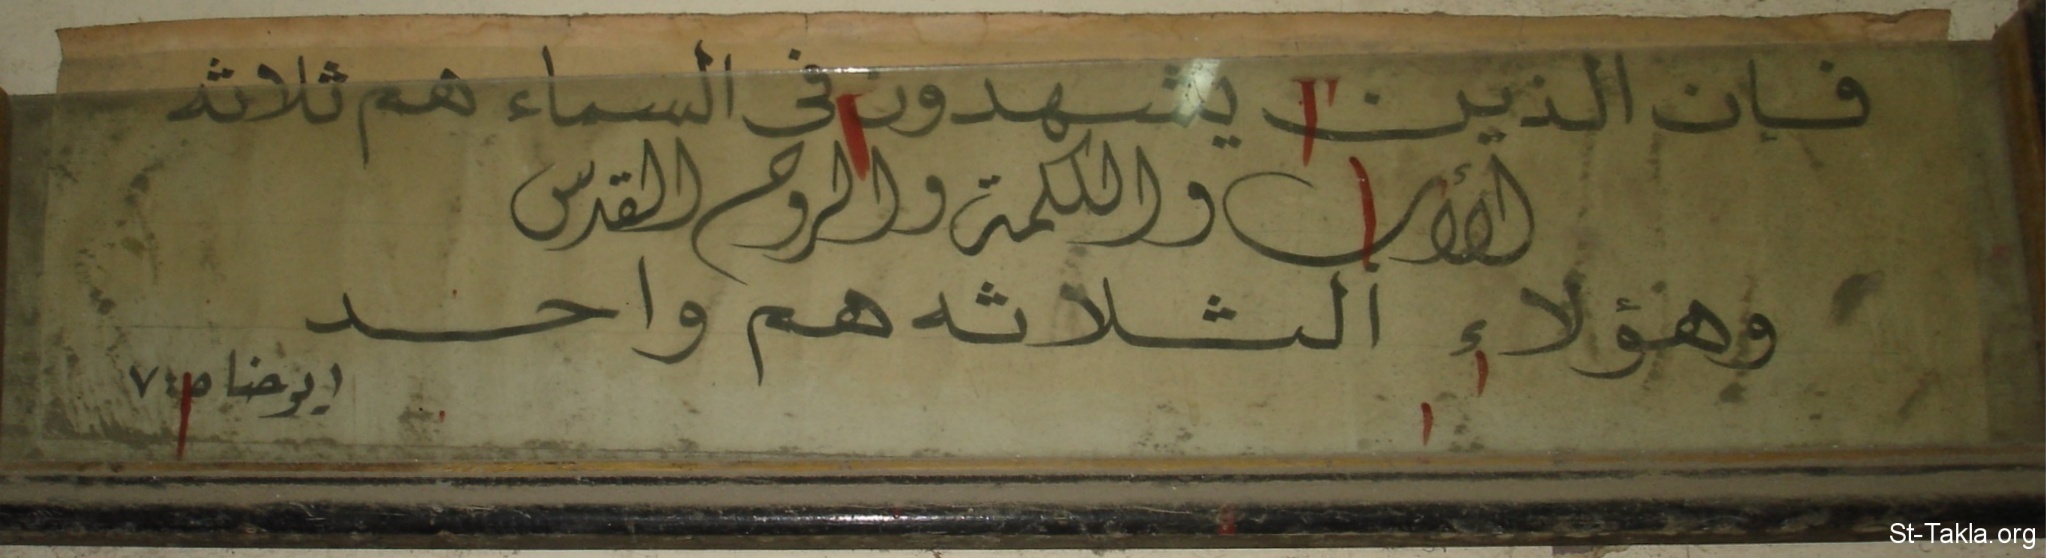 فإن الذين يشهدون فى السماء هم ثلاثه
الأب والكلمة والروح القدس
وهؤلاء الثلاثه هم واحد
ايوحنا ص٥: ٧
St-Takla.org